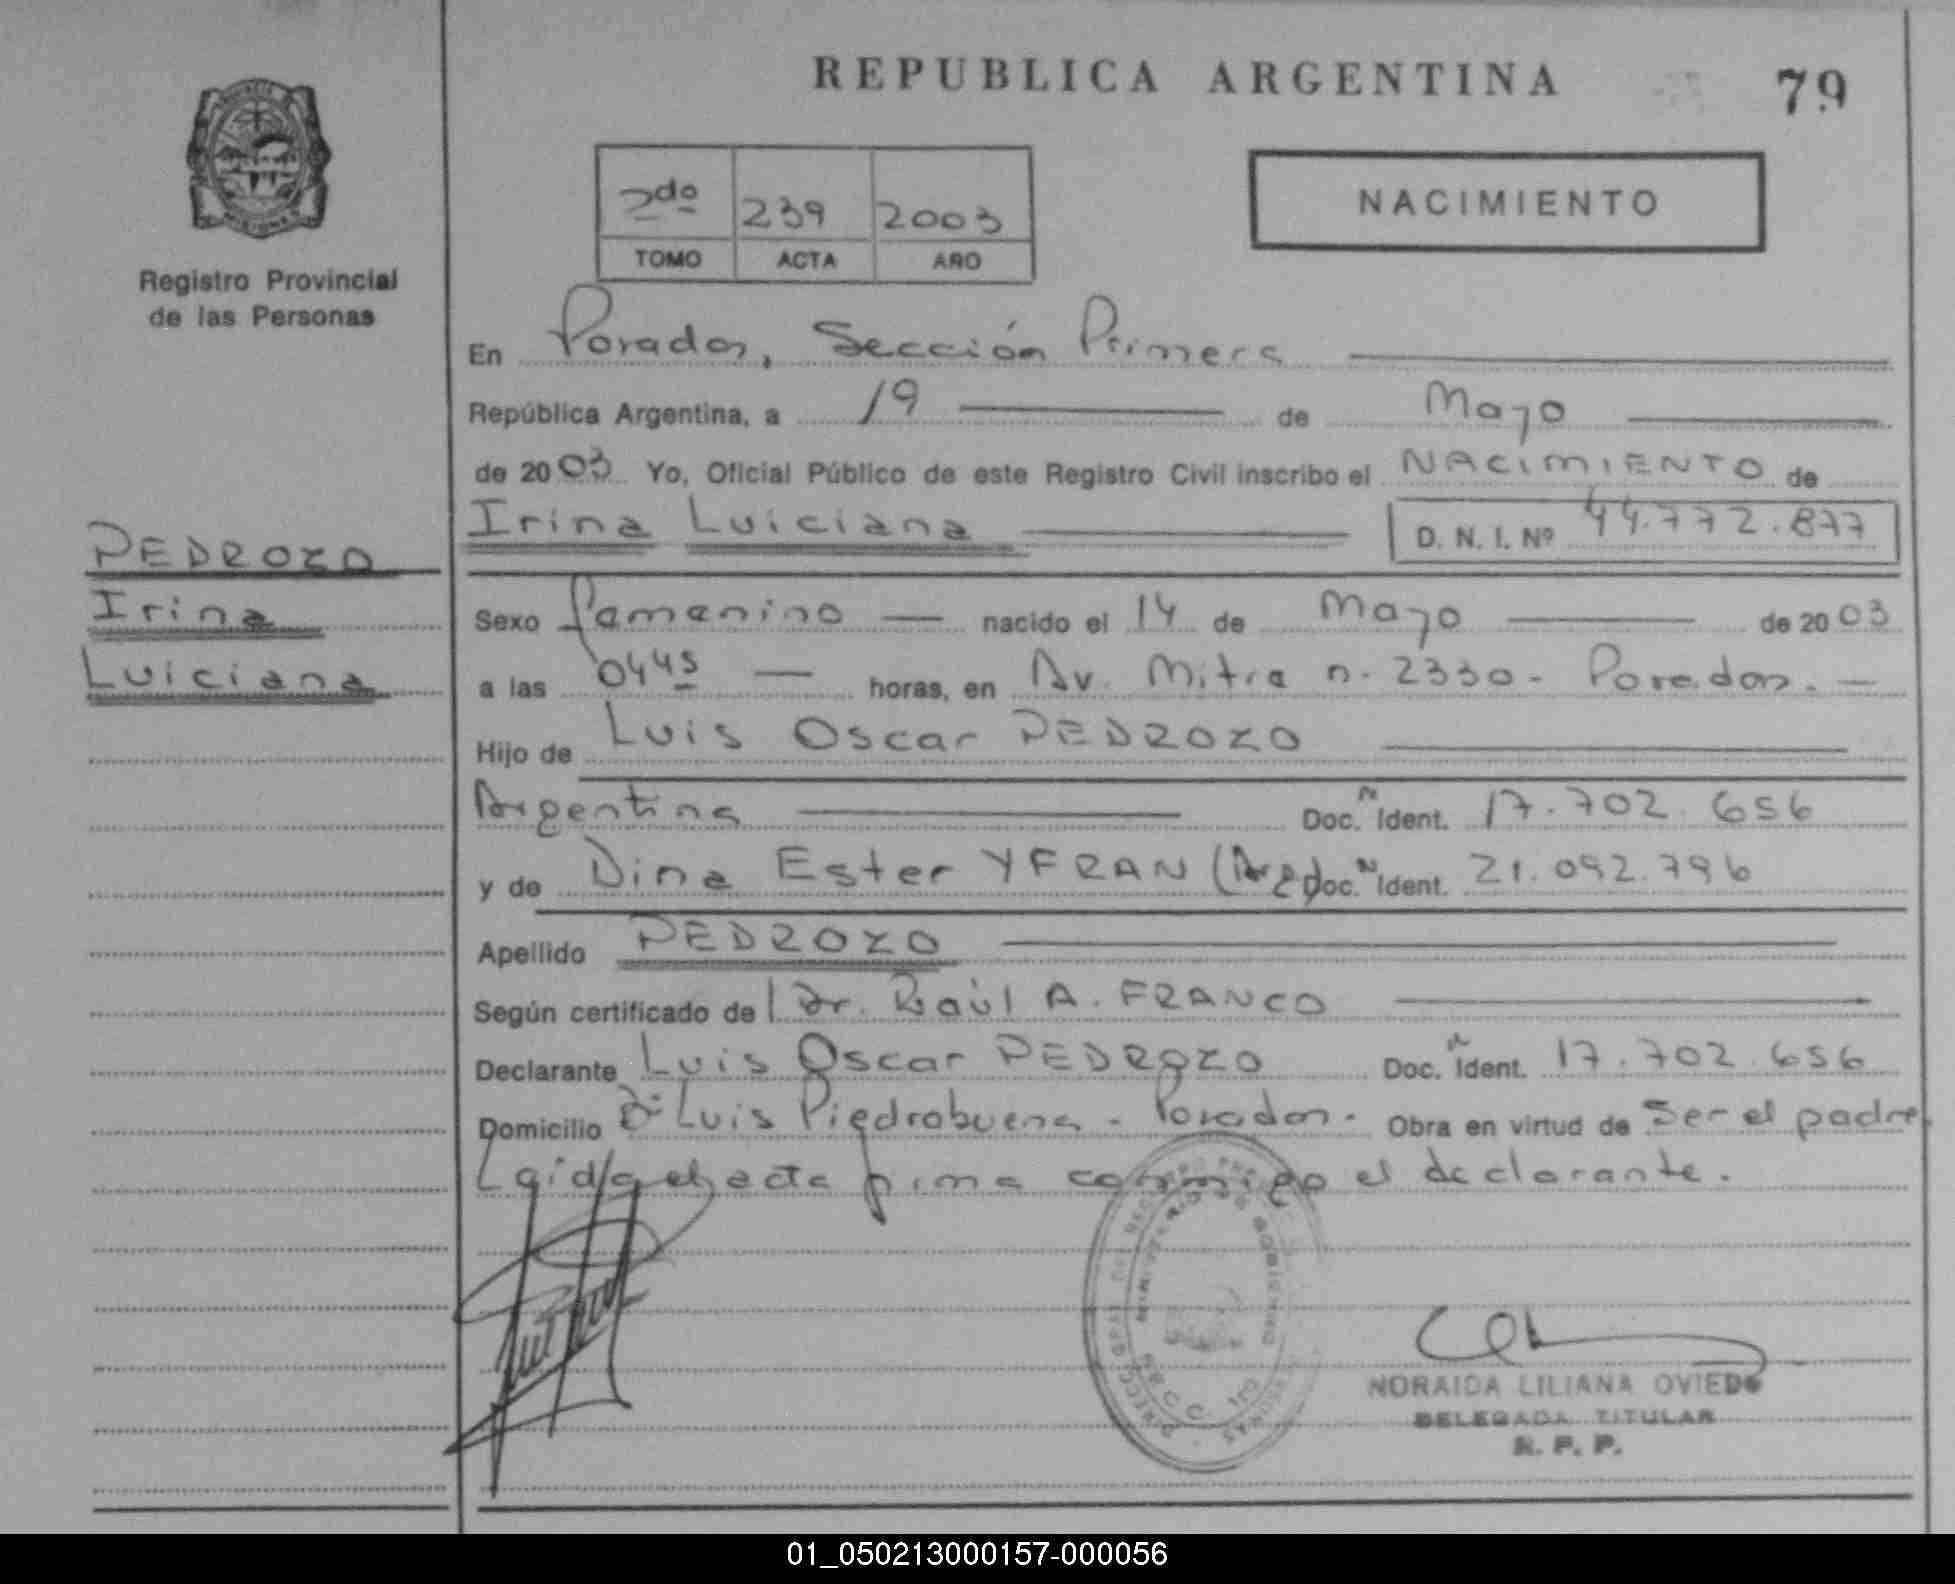 REPUBLICA ARGENTINA
79
2do 239 2003
TOMO ACTA AÑO
NACIMIENTO
Registro Provincial
de las Personas
En Posadas, Sección Primera
República Argentina, a 19 de Mayo
de 2003 Yo, Oficial Público de este Registro Civil inscribo el NACIMIENTO de
Irina Luiciana D. N. I. Nº 44.772.877
PEDROZO
Irina
Luiciana
Sexo Femenino nacido el 14 de Mayo de 2003
a las 0445 horas, en Av. Mitre n. 2330 - Posadas. -
Hijo de Luis Oscar PEDROZO
Argentina Doc. N Ident. 17.702.656
y de Dina Ester YFRAN (Arg) Doc. N Ident. 21.092.796
Apellido PEDROZO
Según certificado de Dr. Raúl A. FRANCO
Declarante Luis Oscar PEDROZO Doc. N Ident. 17.702.656
Domicilio Luis Piedrabuena - Posadas. Obra en virtud de Ser el padre
Leída el acta firma conmigo el declarante.
NORAIDA LILIANA OVIEDO
DELEGADA TITULAR
R. P. P.
01_050213000157-000056